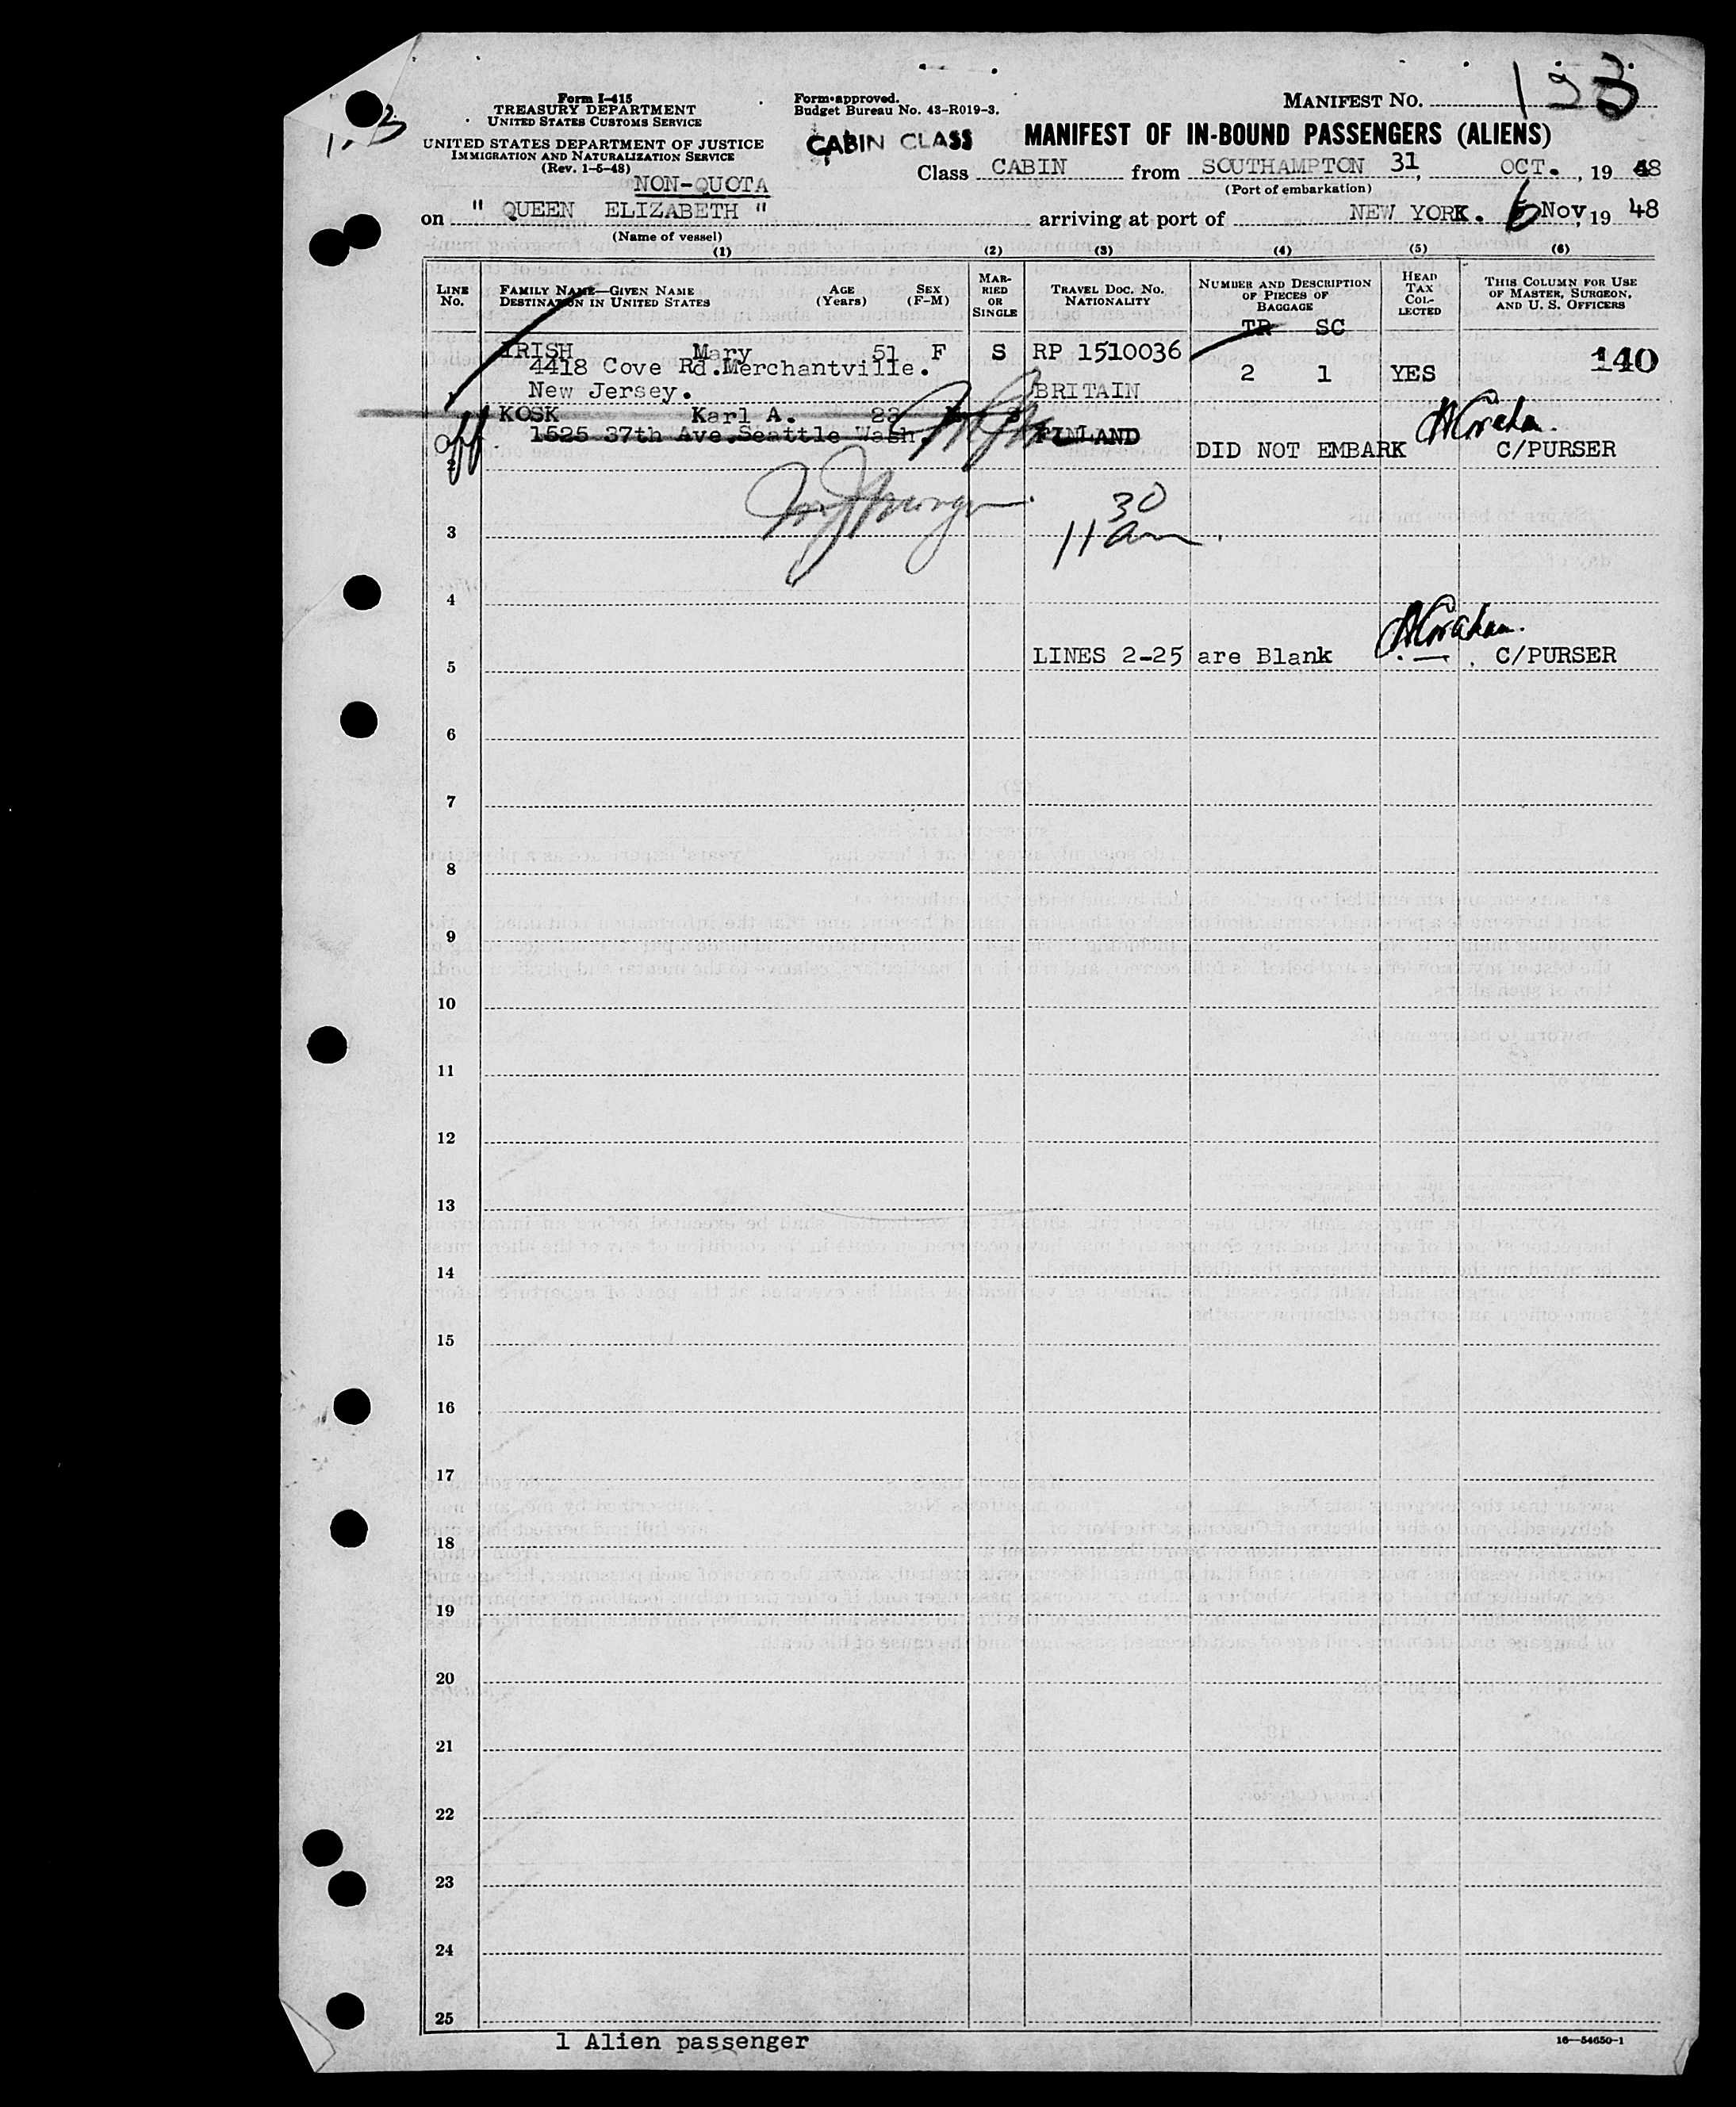 Form I-415
TREASURY DEPARTMENT
UNITED STATES CUSTOMS SERVICE
UNITED STATES DEPARTMENT OF JUSTICE
IMMIGRATION AND NATURALIZATION SERVICE
(Rev. 1-6-48)
NON-QUOTA
Form approved.
Budget Bureau No. 43-R019-3.
CABIN CLASS
MANIFEST NO.
MANIFEST OF IN-BOUND PASSENGERS (ALIENS)
Class CABIN from SOUTHAMPTON 31, OCT., 19 48
(Port of embarkation)
on " QUEEN ELIZABETH " arriving at port of NEW YORK. 6 Nov, 19 48
(Name of vessel)
(1) (2) (3) (4) (5) (6)
LINE No.
FAMILY NAME—GIVEN NAME
DESTINATION IN UNITED STATES
AGE (Years)
SEX (F-M)
MARRIED OR SINGLE
TRAVEL DOC. NO.
NATIONALITY
NUMBER AND DESCRIPTION OF PIECES OF BAGGAGE
HEAD TAX COLLECTED
THIS COLUMN FOR USE OF MASTER, SURGEON, AND U. S. OFFICERS
TR SC
IRISH Mary 51 F S RP 1510036
4418 Cove Rd.Merchantville.
140
2 1 YES
New Jersey. BRITAIN
KOSK Karl A. 23
off 1525 37th Ave.Seattle Wash. FINLAND
2 DID NOT EMBARK C/PURSER
11 30 am
3
4
LINES 2-25 are Blank C/PURSER
5
6
7
8
9
10
11
12
13
14
15
16
17
18
19
20
21
22
23
24
25
1 Alien passenger
16—54650-1